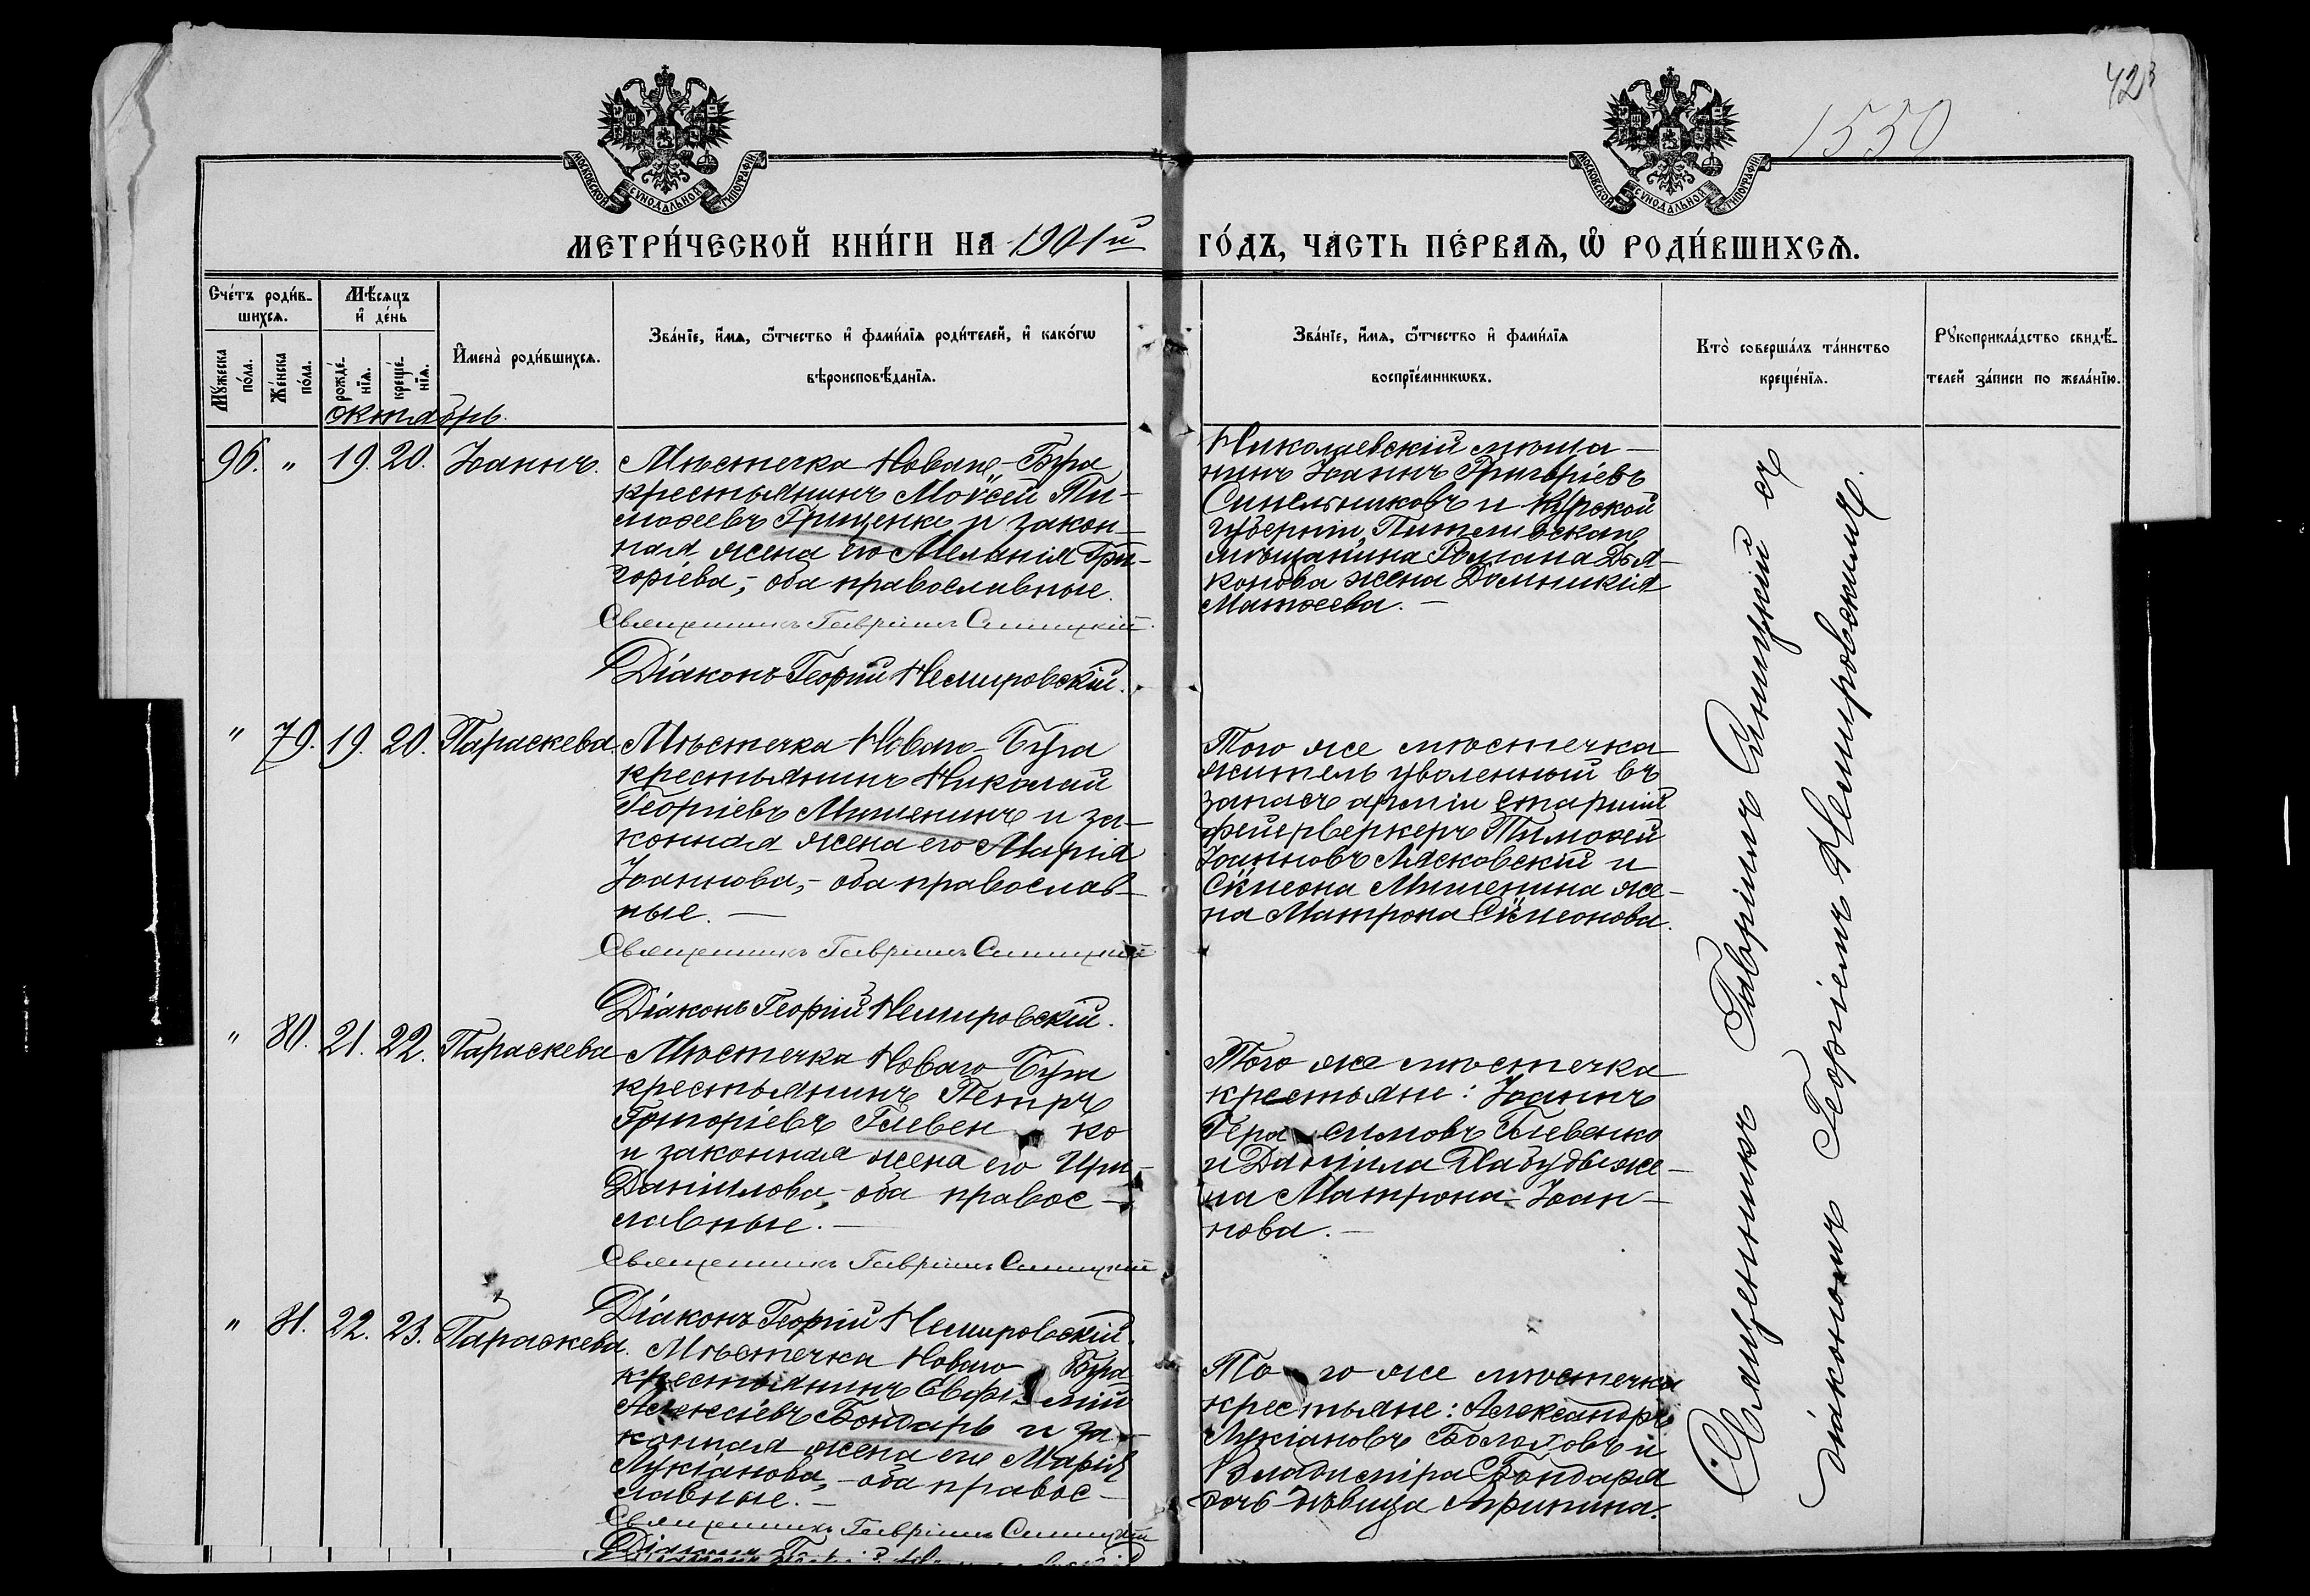 1550
423
МОСКОВСКОЙ СѴНОДАЛЬНОЙ ТИПОГРАФІИ
МОСКОВСКОЙ СѴНОДАЛЬНОЙ ТИПОГРАФІИ
МЕТРИ́ЧЕСКОЙ КНИ́ГИ НА 1901й
ГО́ДЪ, ЧА́СТЬ ПЕ́РВАѦ, Ѡ҆ РОДИ́ВШИХСѦ.
Сче́тъ роди́в-
шихсѧ.
Мꙋ́жеска по́ла.
Же́нска по́ла.
Мѣ́сѧцъ
и҆ де́нь
рожде́-
нїѧ.
креще́-
нїѧ.
И҆мена̀ роди́вшихсѧ.
Зва́нїе, и҆́мѧ, ѻ҆́тчество и҆ фами́лїѧ роди́телей, и҆ како́гѡ
вѣроисповѣ́данїѧ.
Зва́нїе, и҆́мѧ, ѻ҆́тчество и҆ фами́лїѧ
воспрїе́мникѡвъ.
Кто̀ соверша́лъ та́инство
креще́нїѧ.
Рꙋкоприкла́дство свидѣ́-
телей за́писи по жела́нїю.
октябрь.
96. " 19. 20. Іоаннъ.
Мѣстечка Новаго-Буга
крестьянинъ Моѵсей Ти-
моѳеевъ Гриценко и закон-
ная жена его Меланія Гри-
горіева,- оба православные.
Священникъ Гавріилъ Синицкій.
Діаконъ Георгій Немировскій.
Николаевскій мѣща-
нинъ Іоаннъ Григоріевъ
Синельниковъ и Курской
губерніи,
мѣщанина Романа Дья-
конова жена Домникія
Матѳеева. -
" 79. 19. 20. Параскева.
Мѣстечка Новаго-Буга
крестьянинъ Николай
Георгіевъ Мишенинъ и за-
конная жена его Марія
Іоаннова,- оба православ-
ные. -
Священникъ Гавріилъ Синицкій
Діаконъ Георгій Немировскій.
Того же мѣстечка
житель уволенный въ
запасъ арміи старшій
фейерверкеръ Тимоѳей
Іоанновъ Лясковскій и
Сѵмеона Мишенина же-
на Матрона Сѵмеонова.
" 80. 21. 22. Параскева
Мѣстечка Новаго-Буга
крестьянинъ Петръ
Григоріевъ Гиевен ко
и законная жена его Ири-
Даніилова,- оба правос-
лавные. -
Священникъ Гавріилъ Синицкій
Діаконъ Георгій Немировскій.
Того же мѣстечка
крестьяне: Іоаннъ
Гера симовъ Гиевенко
и Даніила же-
на Матрона Іоан-
нова. -
" 81. 22. 23. Параскева.
Мѣстечка Новаго Буга
крестьянинъ Евфи мій
Алексіевъ Бондарь и за-
конная жена его Марія
Лукіанова,- оба правос-
лавные. -
Священникъ Гавріилъ Синицкій
Діаконъ
То го же мѣстечка
крестьяне: Александръ
Лукіановъ Болоховъ и
Владиміра Бондаря
дочь дѣвица Агрипина.
Священникъ Гавріилъ Синицкій съ
діакономъ Георгіемъ Немировскимъ.